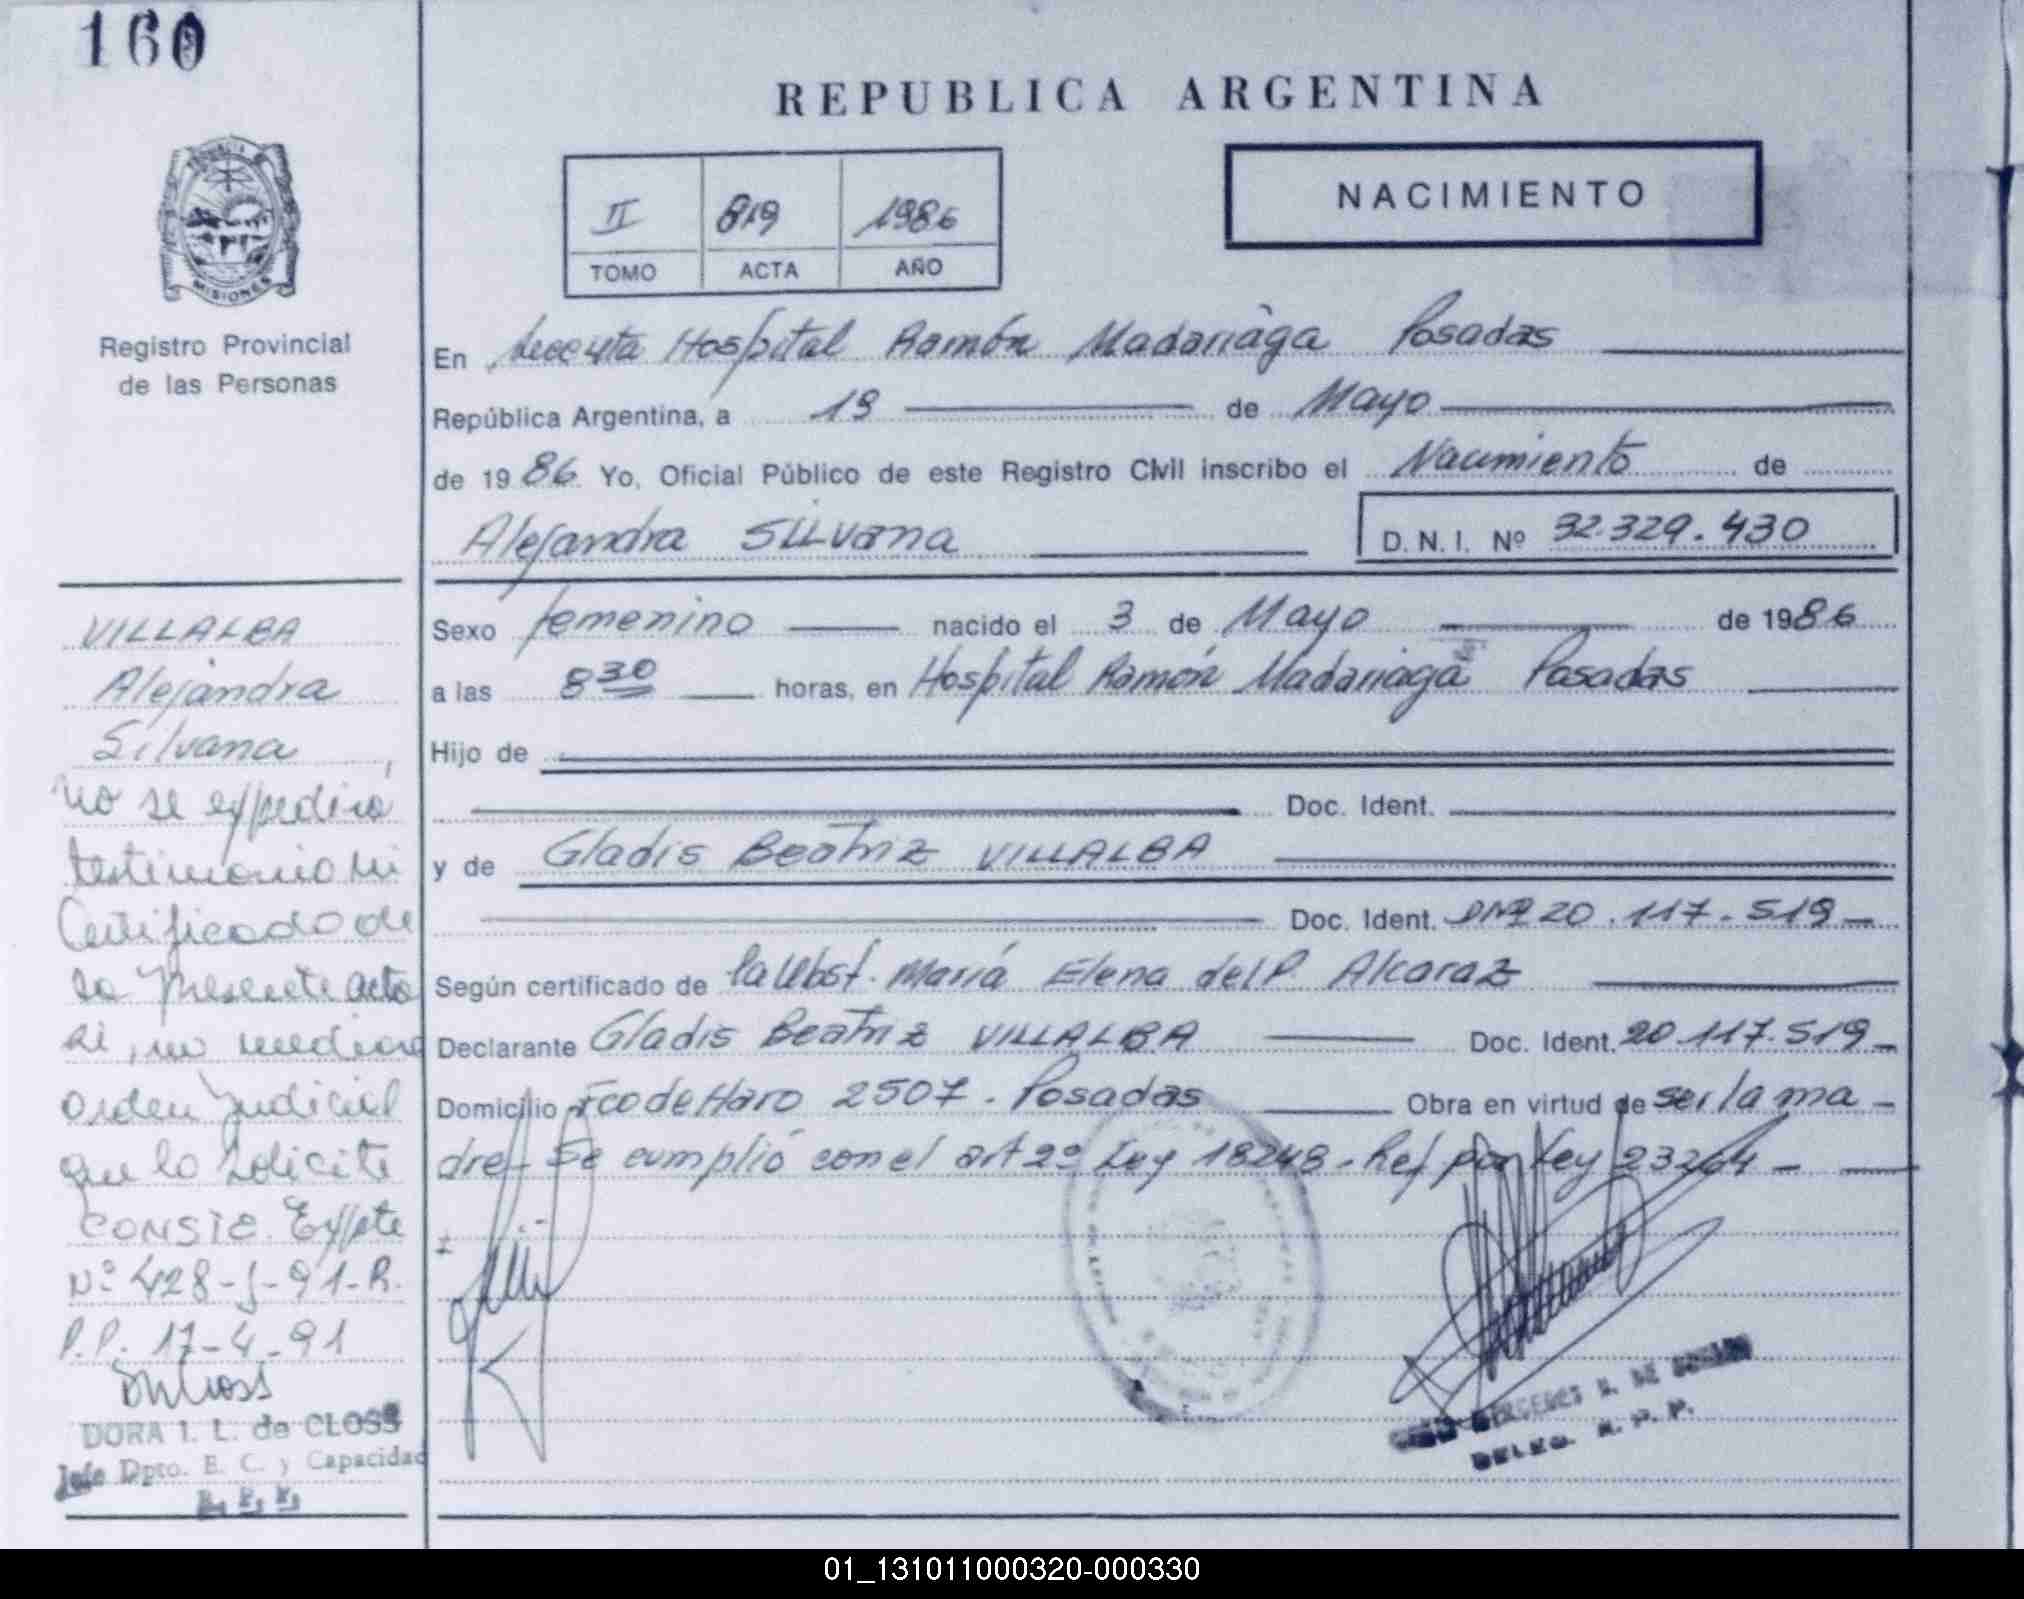 160
PROVINCIA DE
MISIONES
Registro Provincial
de las Personas
VILLALBA
Alejandra
Silvana
no se expedirá
testimonio ni
Certificado de
la presente acta
si, no media
orden judicial
que lo solicite
CONSTE. Expte
Nº 428-J-91-R.
P.P. 17-4-91
DORA I. L. de CLOSS
Jefe Dpto. E. C. y Capacidad
R. P. P.
REPUBLICA ARGENTINA
II 819 1986
TOMO ACTA AÑO
NACIMIENTO
En Hospital Ramón Madariaga Posadas
República Argentina, a 19 de Mayo
de 1986. Yo, Oficial Público de este Registro Civil inscribo el Nacimiento de
Alejandra Silvana D. N. I. Nº 32.329.430
Sexo femenino nacido el 3 de Mayo de 1986
a las 8 30 horas, en Hospital Ramón Madariaga Posadas
Hijo de
Doc. Ident.
y de Gladis Beatriz VILLALBA
Doc. Ident. DNI 20.117.519
Según certificado de la Obst. María Elena del P. Alcaraz
Declarante Gladis Beatriz VILLALBA Doc. Ident. 20.117.519
Domicilio Fco de Haro 2507. Posadas Obra en virtud de ser la ma-
dre- Se cumplió con el art 2º Ley 18248. Ref por Ley 23264
DELEG. R. P. P.
01_131011000320-000330